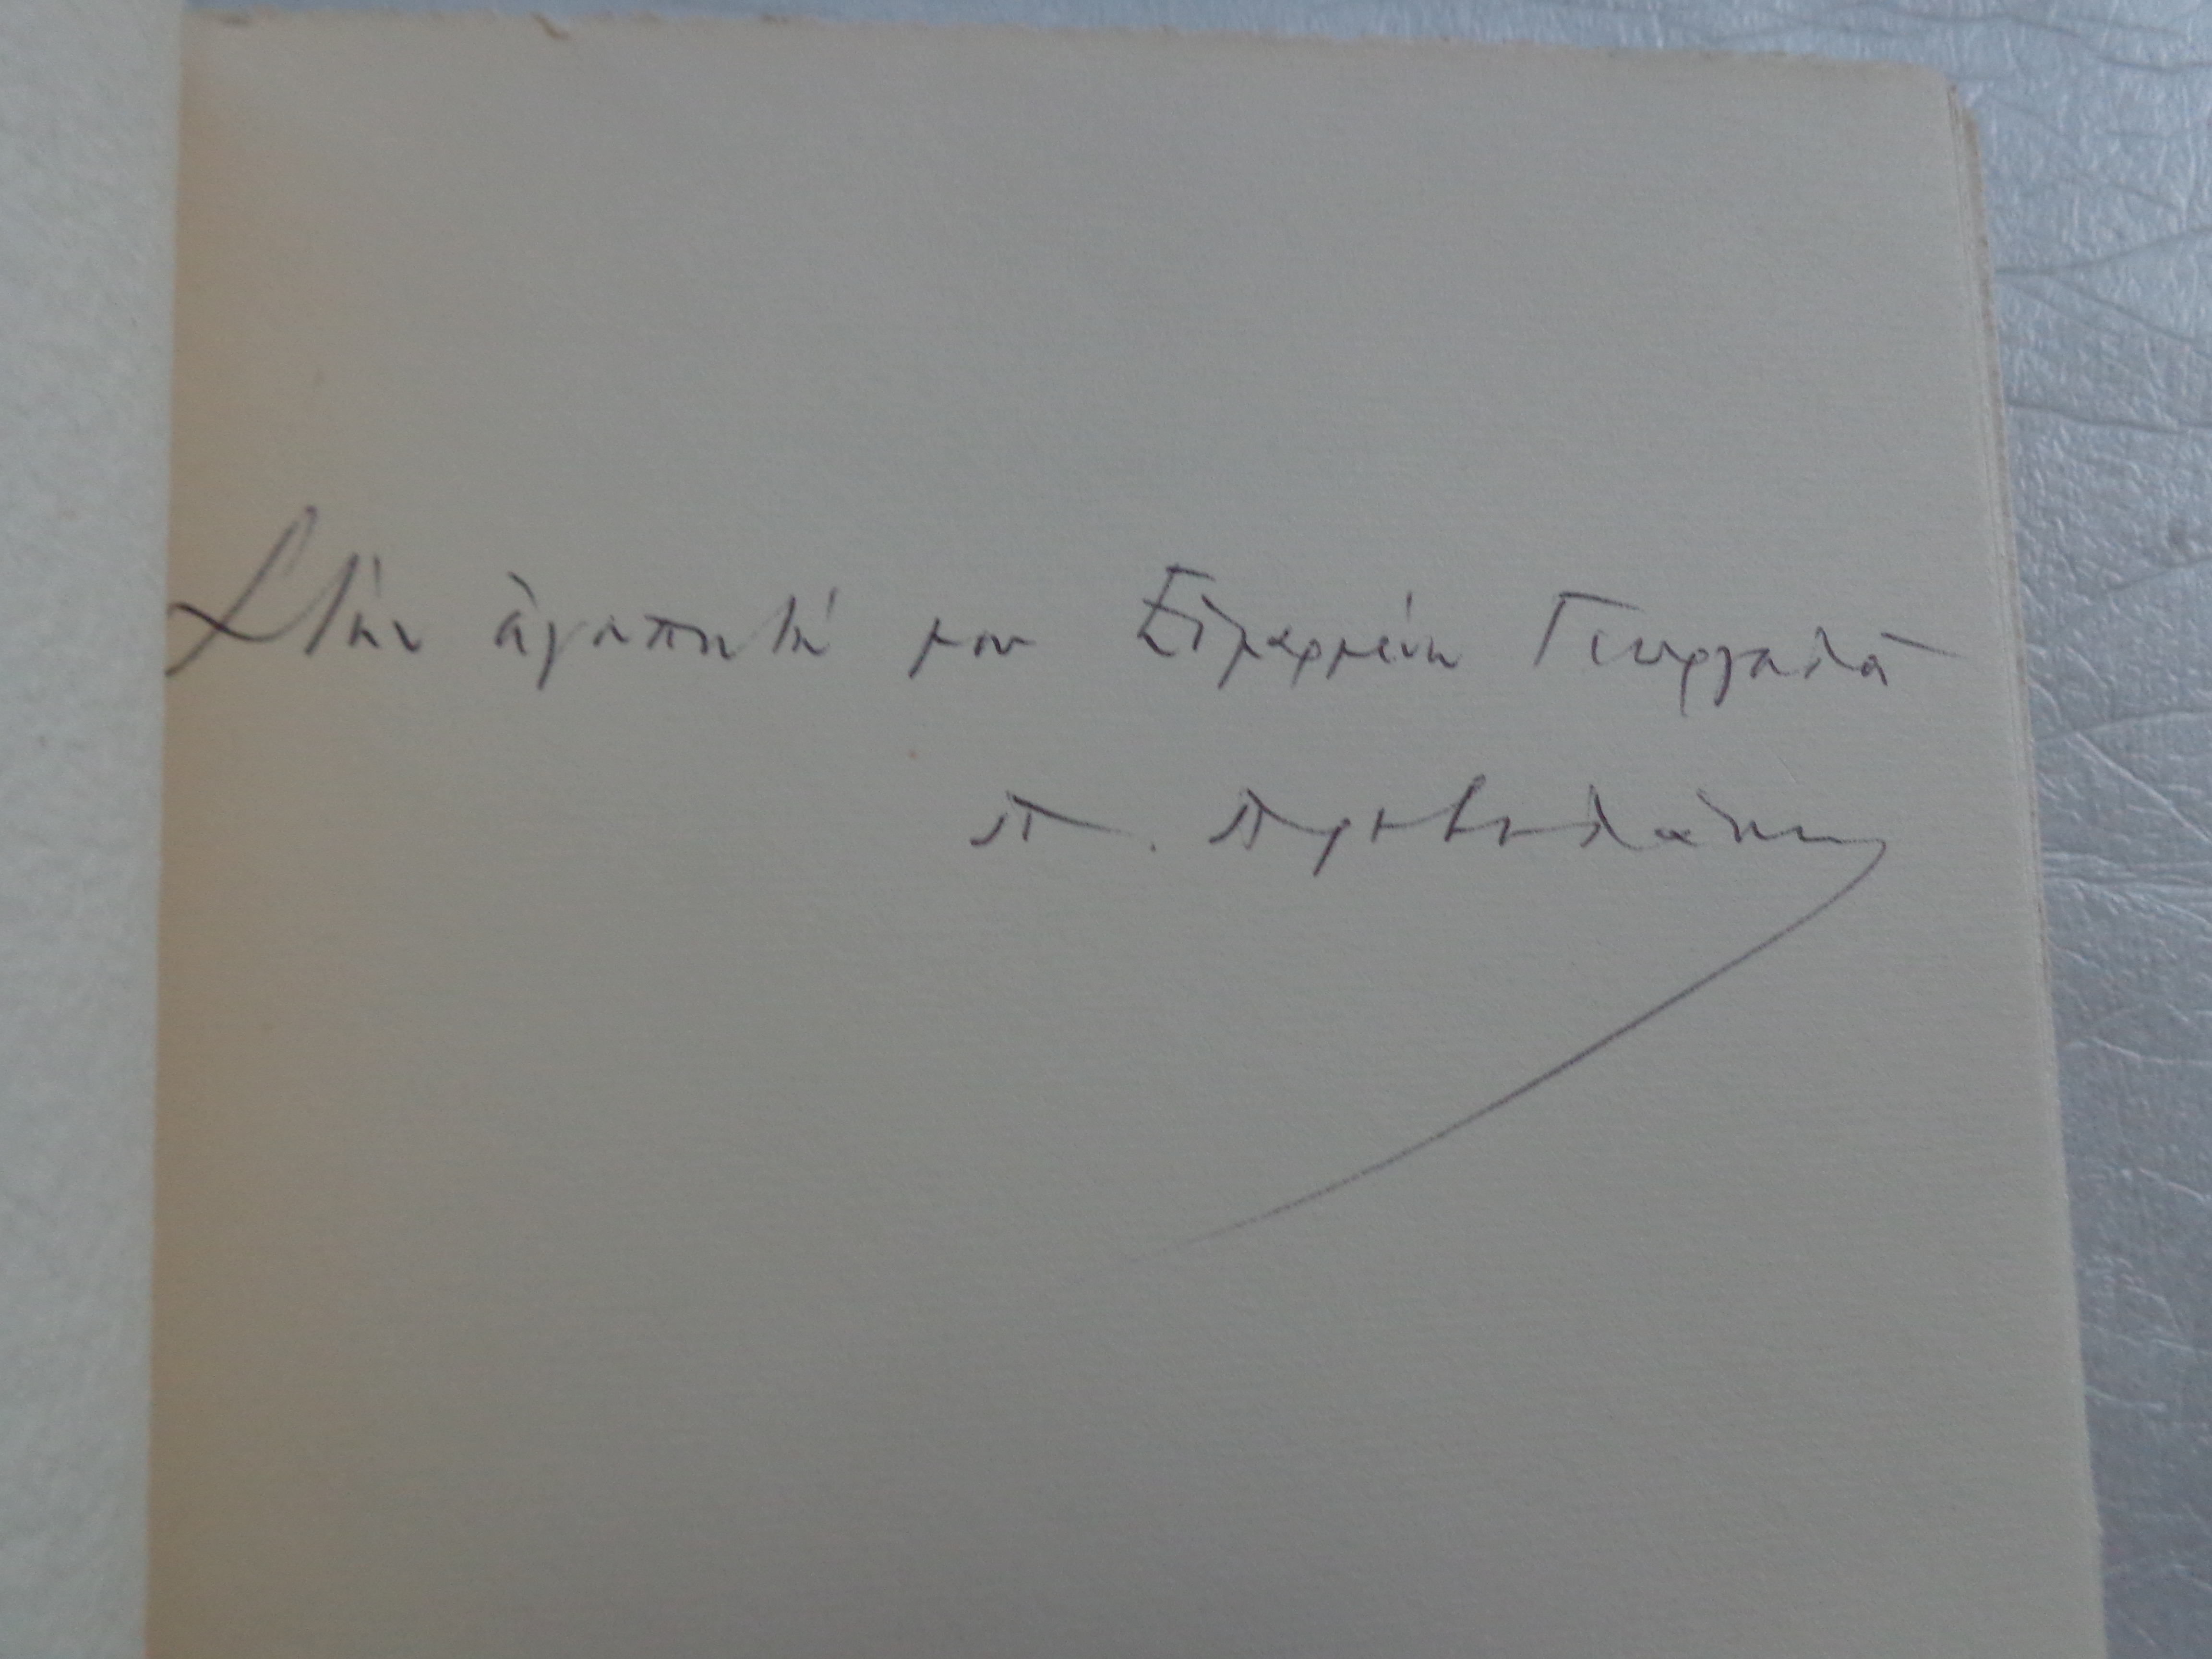 Στήν ἀγαπητή μου Εἱμαρμένη Γεωργαλᾶ
Π. Πρεβελάκης